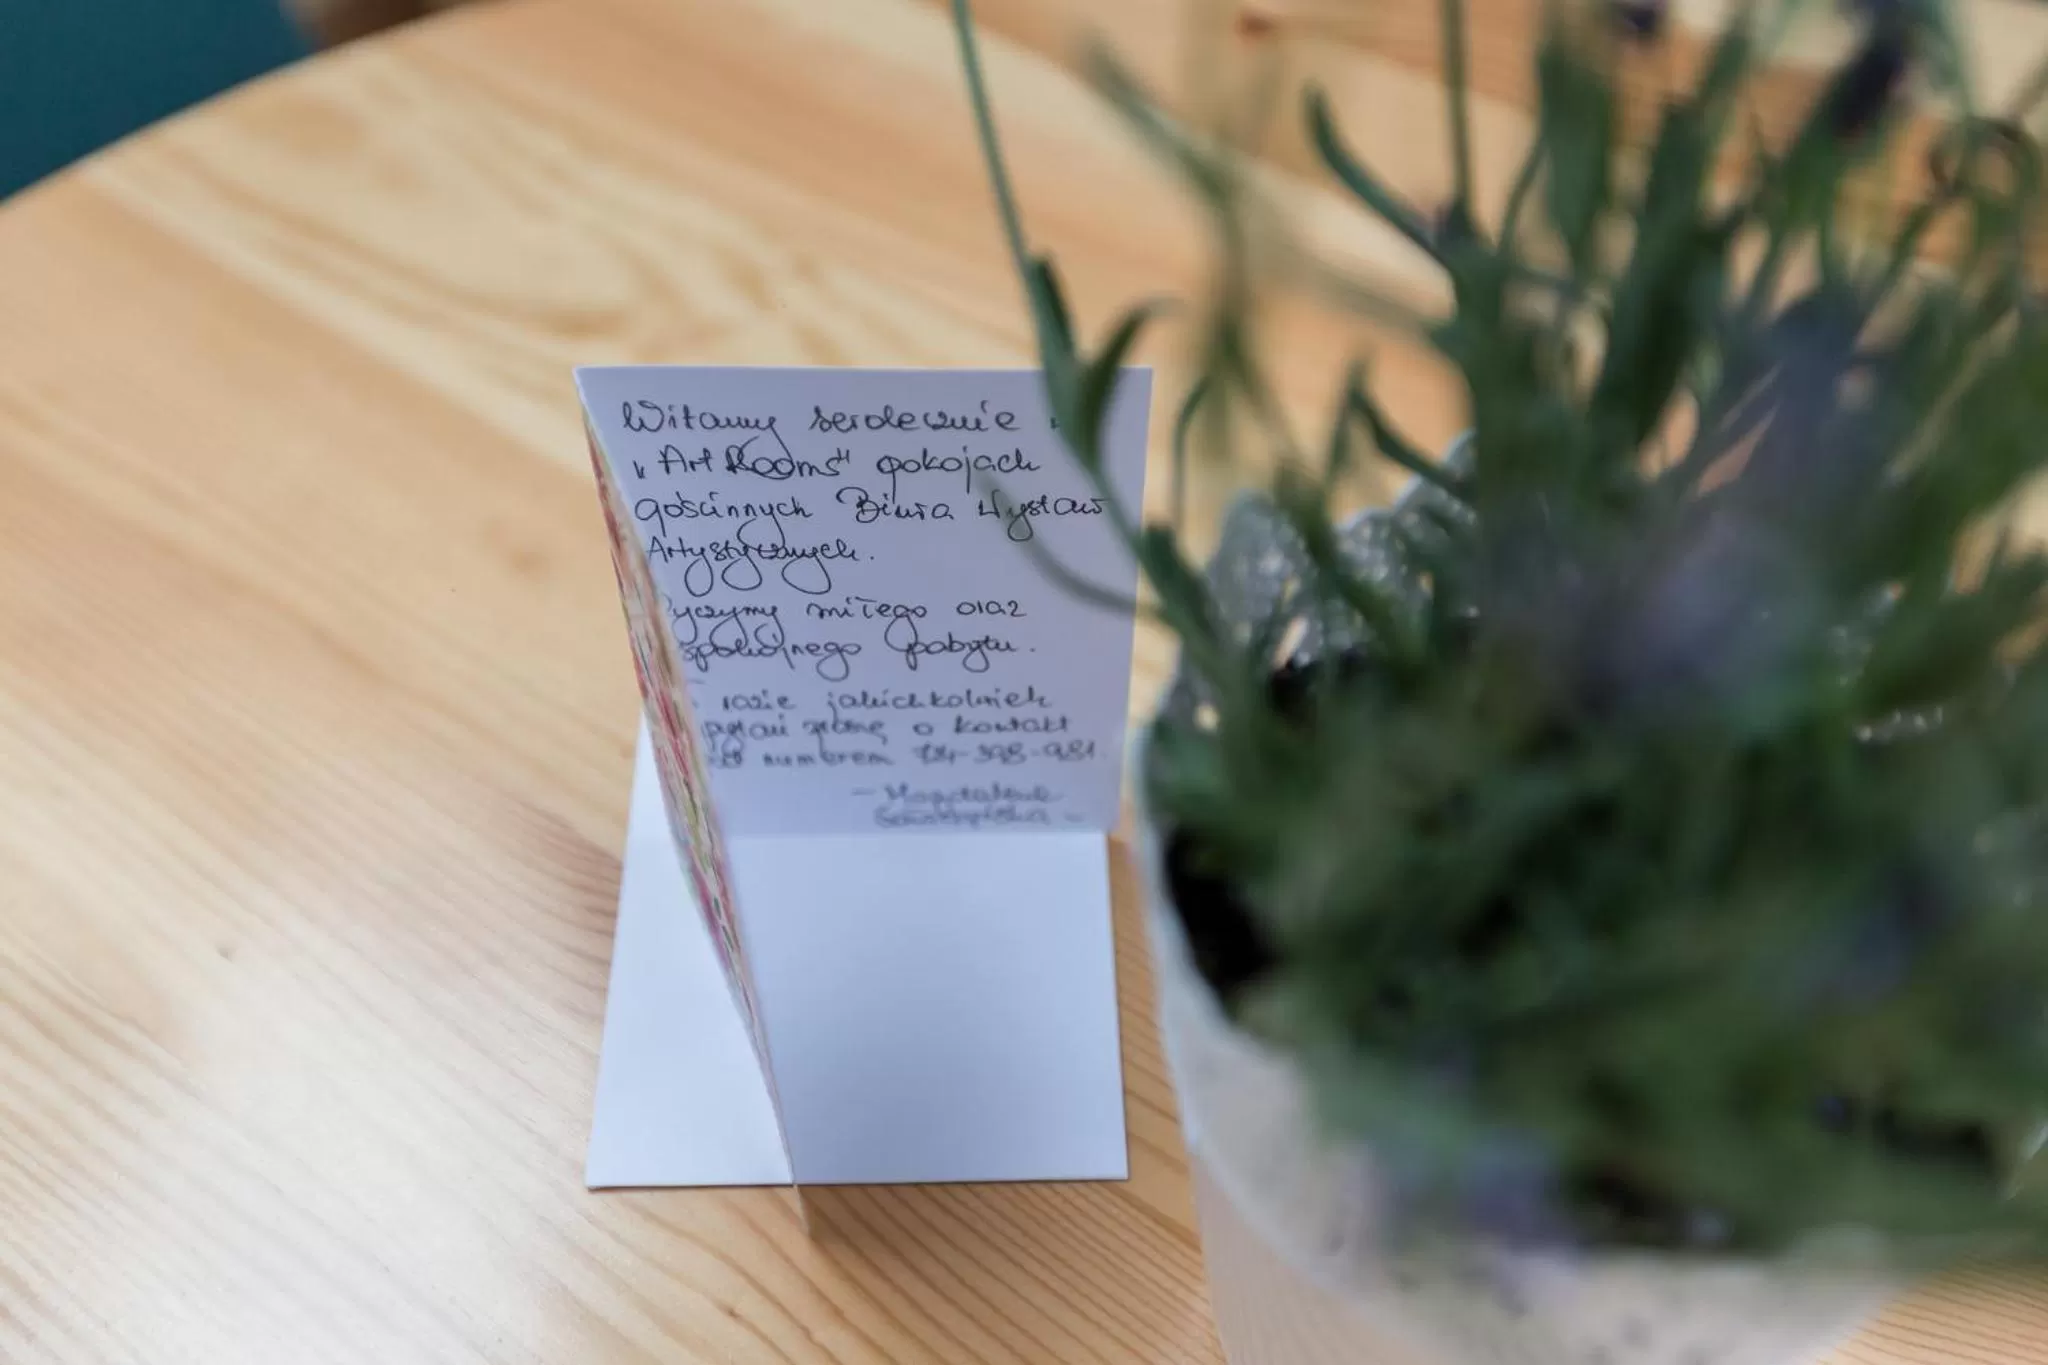 Witamy serdecznie w
"Art Rooms" pokojach
gościnnych Biura Wystaw
Artystycznych.
Życzymy miłego oraz
spokojnego pobytu.
razie jakichkolwiek
pytań proszę o kontakt
numerem
- Magdalena